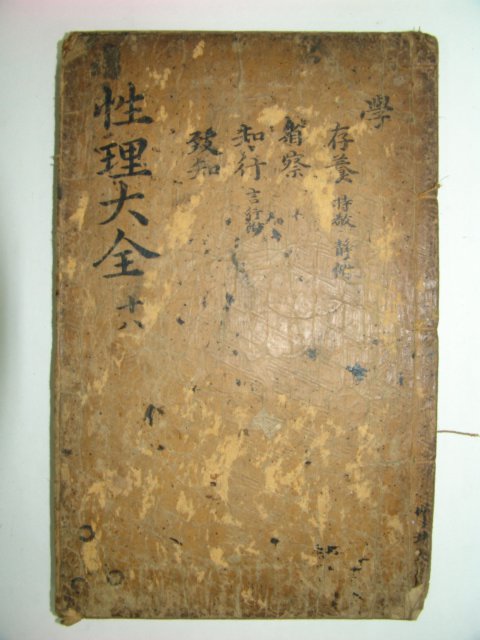 學
存養 持敬 靜附
省察
知行 言行附
致知
性理大全 十八